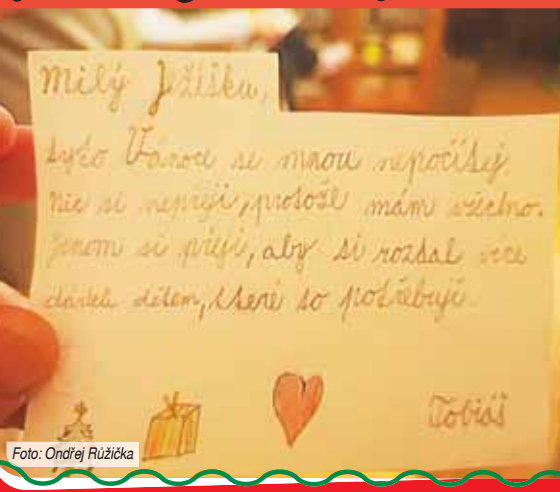 Milý Ježíšku,
tyto Vánoce se mnou nepočítej.
Nic si nepřeji, protože mám všechno.
Jenom si přeji, aby si rozdal více
dárků dětem, které to potřebují.
Tobiáš
Foto: Ondřej Růžička